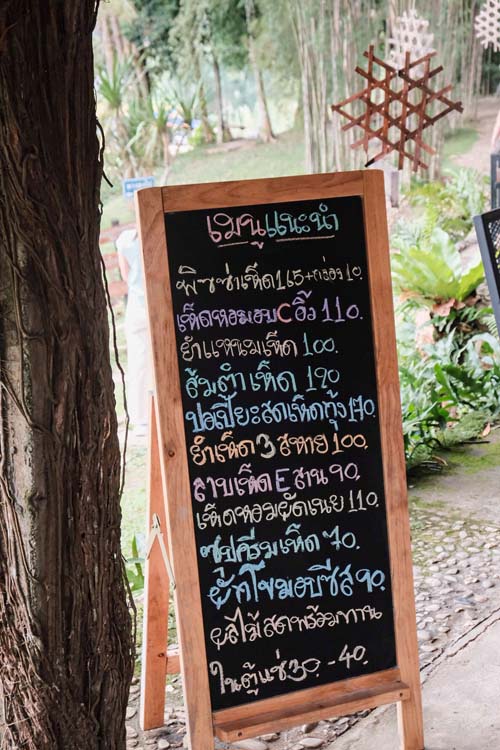 เมนูแนะนำ
พิซซ่าเห็ด 165+กล่อง 10.
เห็ดหอมอบ C อิ๊ว 110.
ยำแหนมเห็ด 100.
ส้มตำเห็ด 120
ปอเปี๊ยะสดเห็ดกุ้ง 170.
ยำเห็ด 3 สหาย 100.
ลาบเห็ด E สาน 90.
เห็ดหอมผัดเนย 110.
ซุปครีมเห็ด 70.
ผักโขมอบชีส 90.
ผลไม้สดพร้อมทาน
ในตู้แช่ 30.-40.